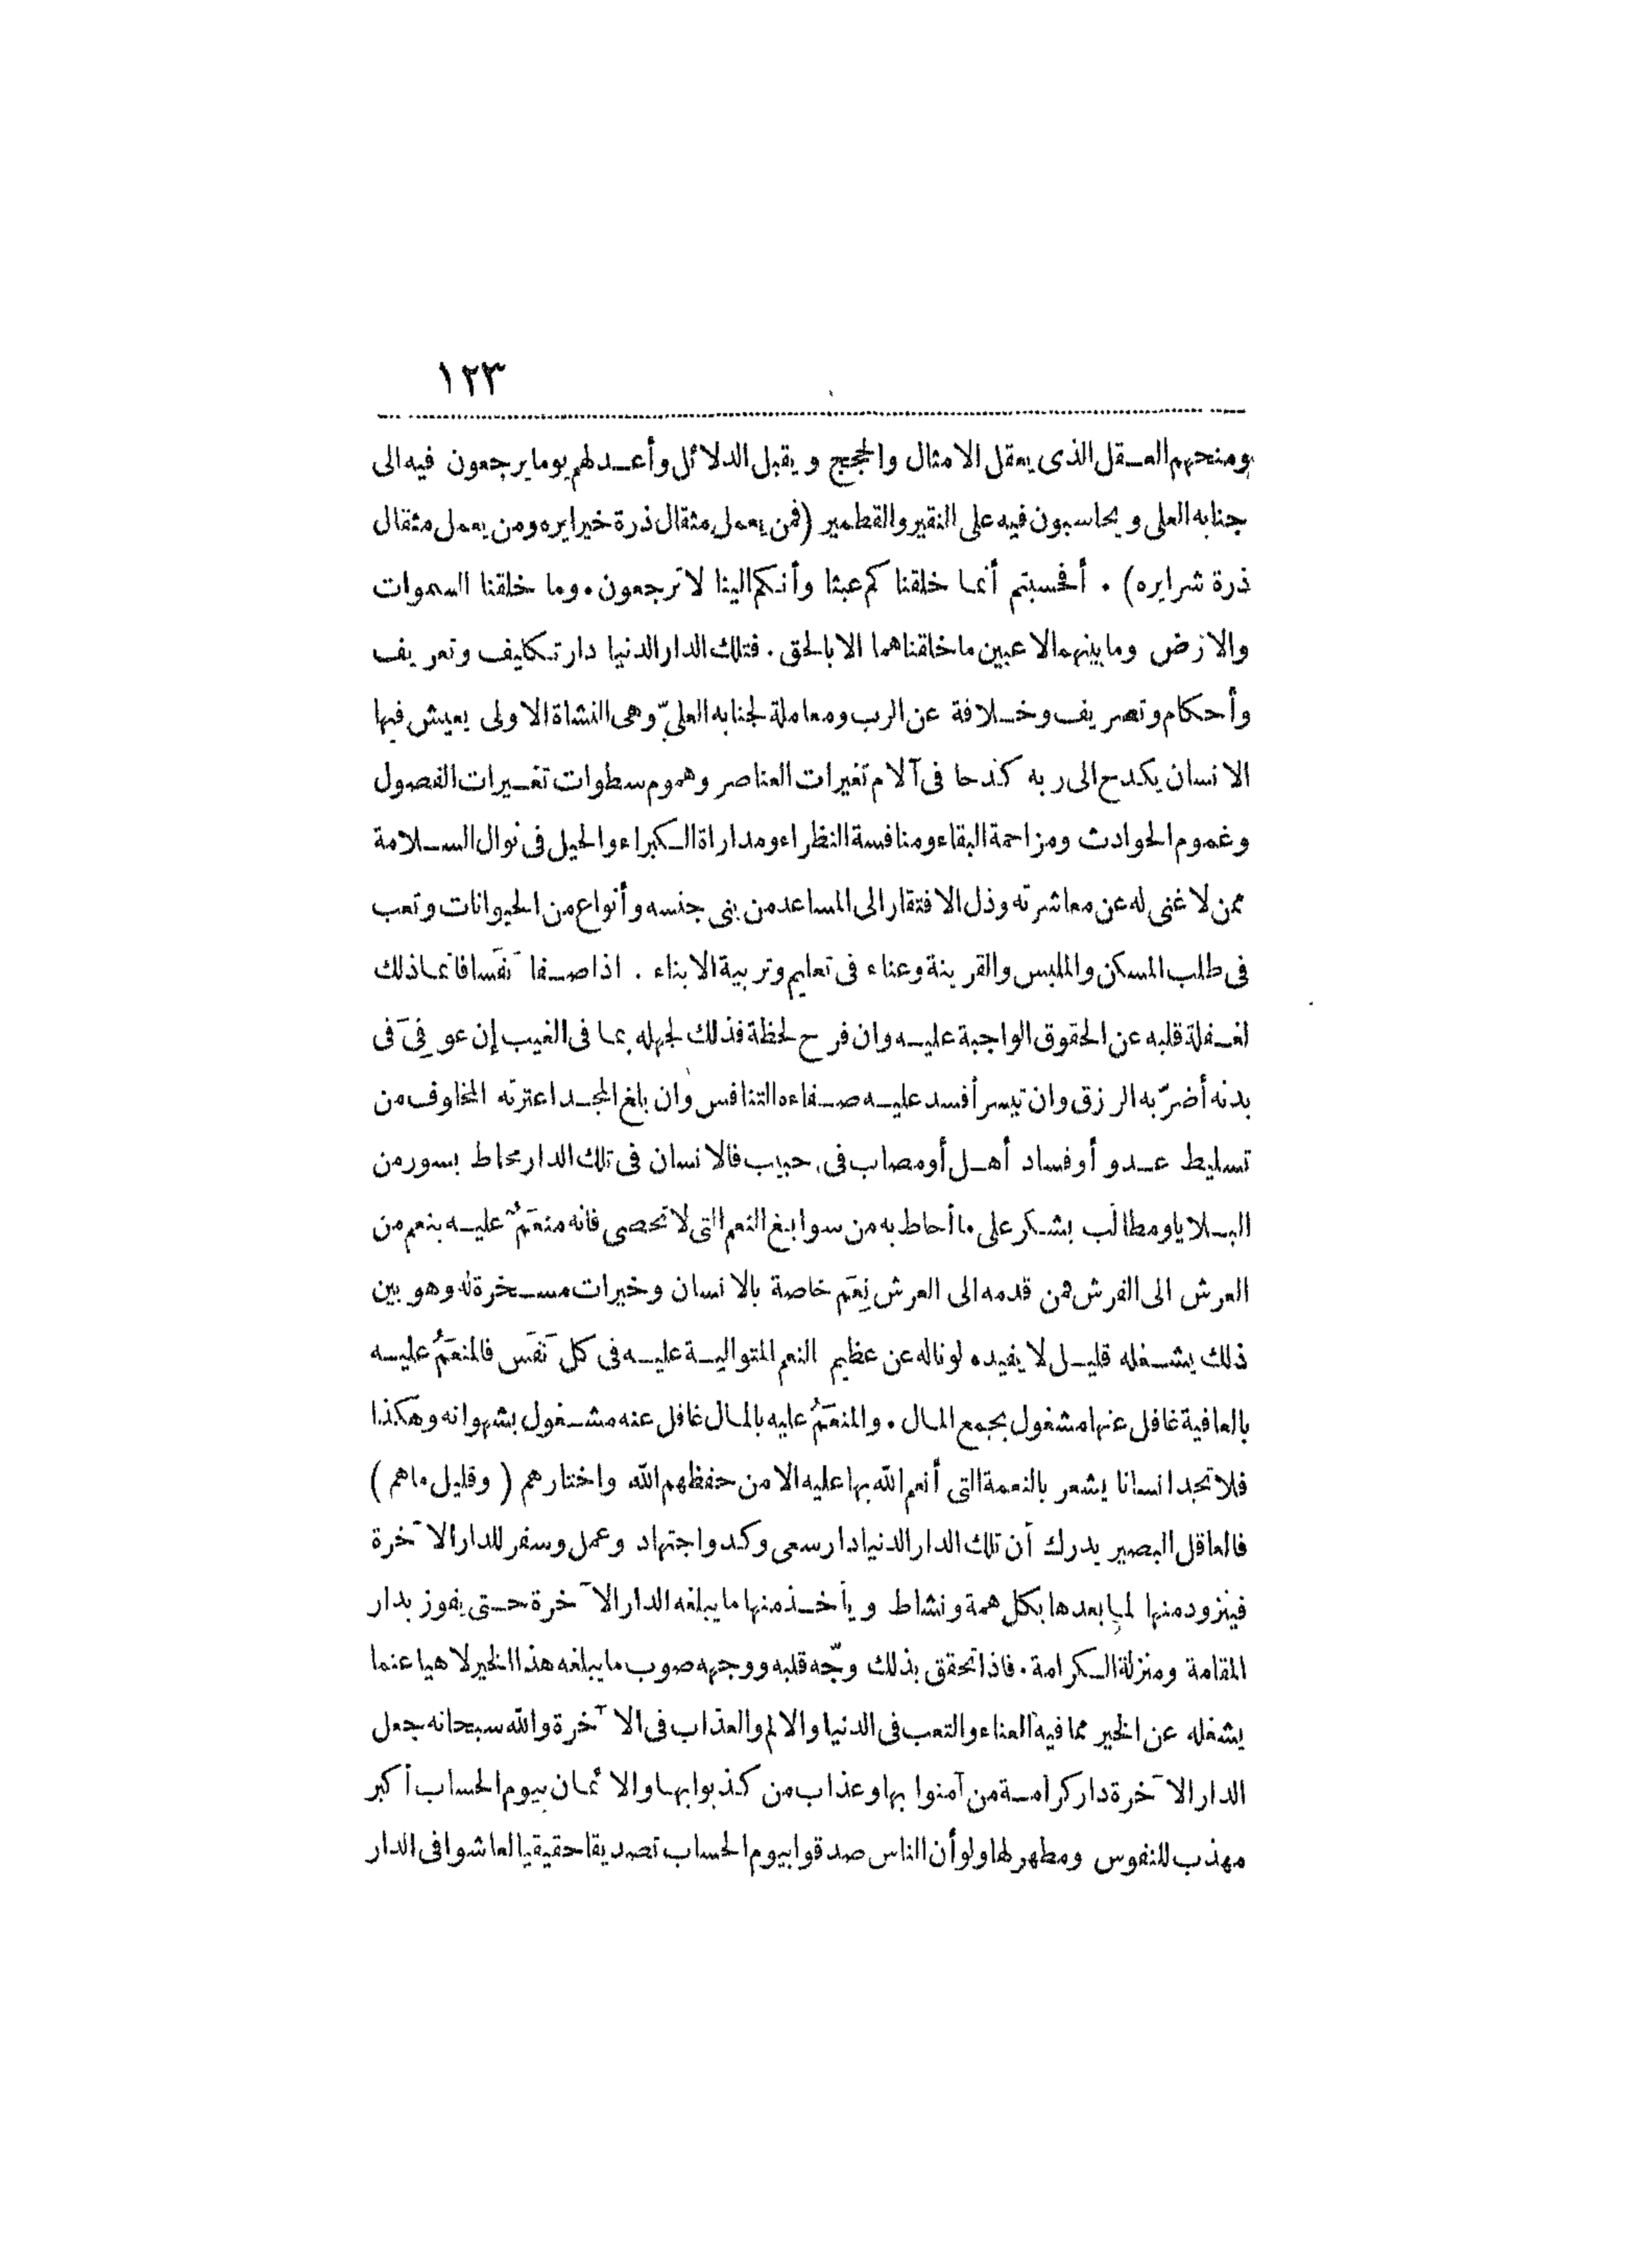 ١٢٣
ومنحهم العقل الذى يعقل الامثال والحجج ويقبل الدلائل وأعد لهم يوما يرجعون فيه الى
جنابه العلى ويحاسبون فيه على النقير والقطمير (فمن يعمل مثقال ذرة خيرا يره ومن يعمل مثقال
ذرة شرا يره) . أفحسبتم أنما خلقنا كم عبثا وأنكم الينا لا ترجعون . وما خلقنا السموات
والارض وما بينهما لاعبين ما خلقناهما الا بالحق . فتلك الدار الدنيا دار تكليف وتعريف
وأحكام وتصريف وخلافة عن الرب ومعاملة لجنابه العلىّ وهى النشاة الاولى يعيش فيها
الانسان يكدح الى ربه كدحا فى آلام تغيرات العناصر وهموم سطوات تغييرات الفصول
وغموم الحوادث ومزاحمة البقاء ومنافسة النظراء ومداراة الكبراء والحيل فى نوال السلامة
ممن لا غنى له عن معاشرته وذل الافتقار الى المساعد من بنى جنسه وأنواع من الحيوانات وتعب
فى طلب المسكن والملبس والقرينة وعناء فى تعليم وتربية الابناء . اذا صفا نَفَسا فانما ذلك
لغفلة قلبه عن الحقوق الواجبة عليه وان فرح لحظة فذلك لجهله بما فى الغيب إن عوفِىَ فى
بدنه أضرّ به الرزق وان تيسر أفسد عليه صفاءه التنافس وان بلغ المجد اعترته المخاوف من
تسليط عدو أو فساد أهل أو مصاب فى حبيب فالانسان فى تلك الدار محاط بسور من
البلايا ومطالَب بشكر على ما أحاط به من سوابغ النعم التى لا تحصى فانه منعَمٌ عليه بنعم من
العرش الى الفرش فمن قدمه الى العرش نِعَم خاصة بالانسان وخيرات مسخرة له وهو بين
ذلك يشغله قليل لا يفيده لو ناله عن عظيم النعم المتوالية عليه فى كل نَفَس فالمنعَمُ عليه
بالعافية غافل عنها مشغول بجمع المال . والمنعَمُ عليه بالمال غافل عنه مشغول بشهوانه وهكذا
فلا تجد انسانا يشعر بالنعمة التى أنعم الله بها عليه الا من حفظهم الله واختارهم ( وقليل ما هم )
فالعاقل البصير يدرك أن تلك الدار الدنيا دار سعى وكد واجتهاد وعمل وسفر للدار الآخرة
فيتزود منها لما بعدها بكل همة ونشاط ويأخذ منها ما يبلغه الدار الآخرة حتى يفوز بدار
المقامة ومنزلة الكرامة . فاذا تحقق بذلك وجّه قلبه ووجهه صوب ما يبلغه هذا الخير لا هيا عنما
يشغله عن الخير مما فيه العناء والتعب فى الدنيا والالم والعذاب فى الآخرة والله سبحانه جعل
الدار الآخرة دار كرامة من آمنوا بها وعذاب من كذبوا بها والائمان بيوم الحساب أكبر
مهذب للنفوس ومطهر لها ولو أن الناس صدقوا بيوم الحساب تصديقا حقيقيا لعاشوا فى الدار